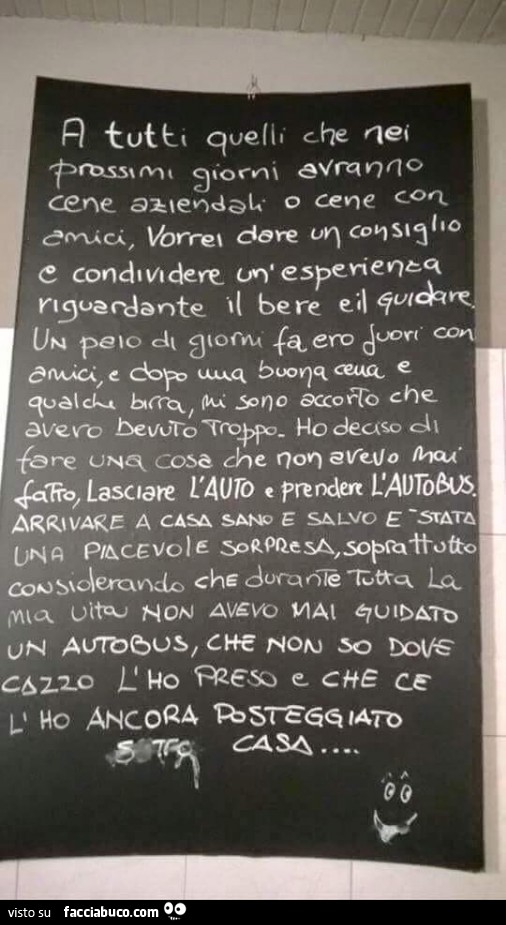 A tutti quelli che nei
prossimi giorni avranno
cene aziendali o cene con
amici, Vorrei dare un consiglio
e condividere un'esperienza
riguardante il bere e il GUIDARE.
UN paio di giorni fa ero fuori con
amici, e dopo una buona cena e
qualche birra, mi sono accorto che
avevo bevuto troppo. Ho deciso di
fare UNA cosa che non avevo mai
fatto, Lasciare L'AUTO e prendere L'AUTOBUS.
ARRIVARE A CASA SANO E SALVO E' STATA
UNA PIACEVOLE SORPRESA, soprattutto
considerando che durante Tutta La
mia vita NON AVEVO MAI GUIDATO
UN AUTOBUS, CHE NON SO DOVE
CAZZO L'HO PRESO e CHE CE
L'HO ANCORA POSTEGGIATO
SOTTO CASA....
visto su facciabuco.com